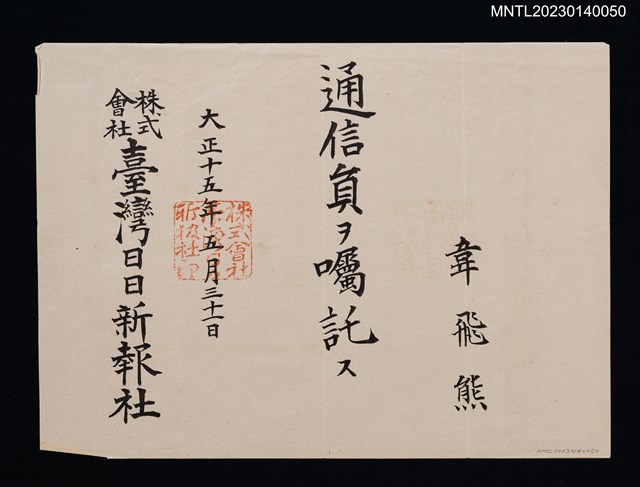 MNTL20230140050
韋飛熊
通信員ヲ囑託ス
大正十五年五月三十一日
株式會社
臺灣日日新報社
株式會社